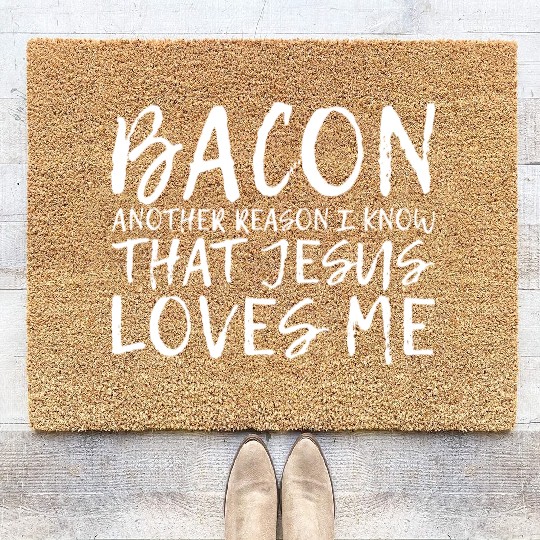 BACON
ANOTHER REASON I KNOW
THAT JESUS
LOVES ME